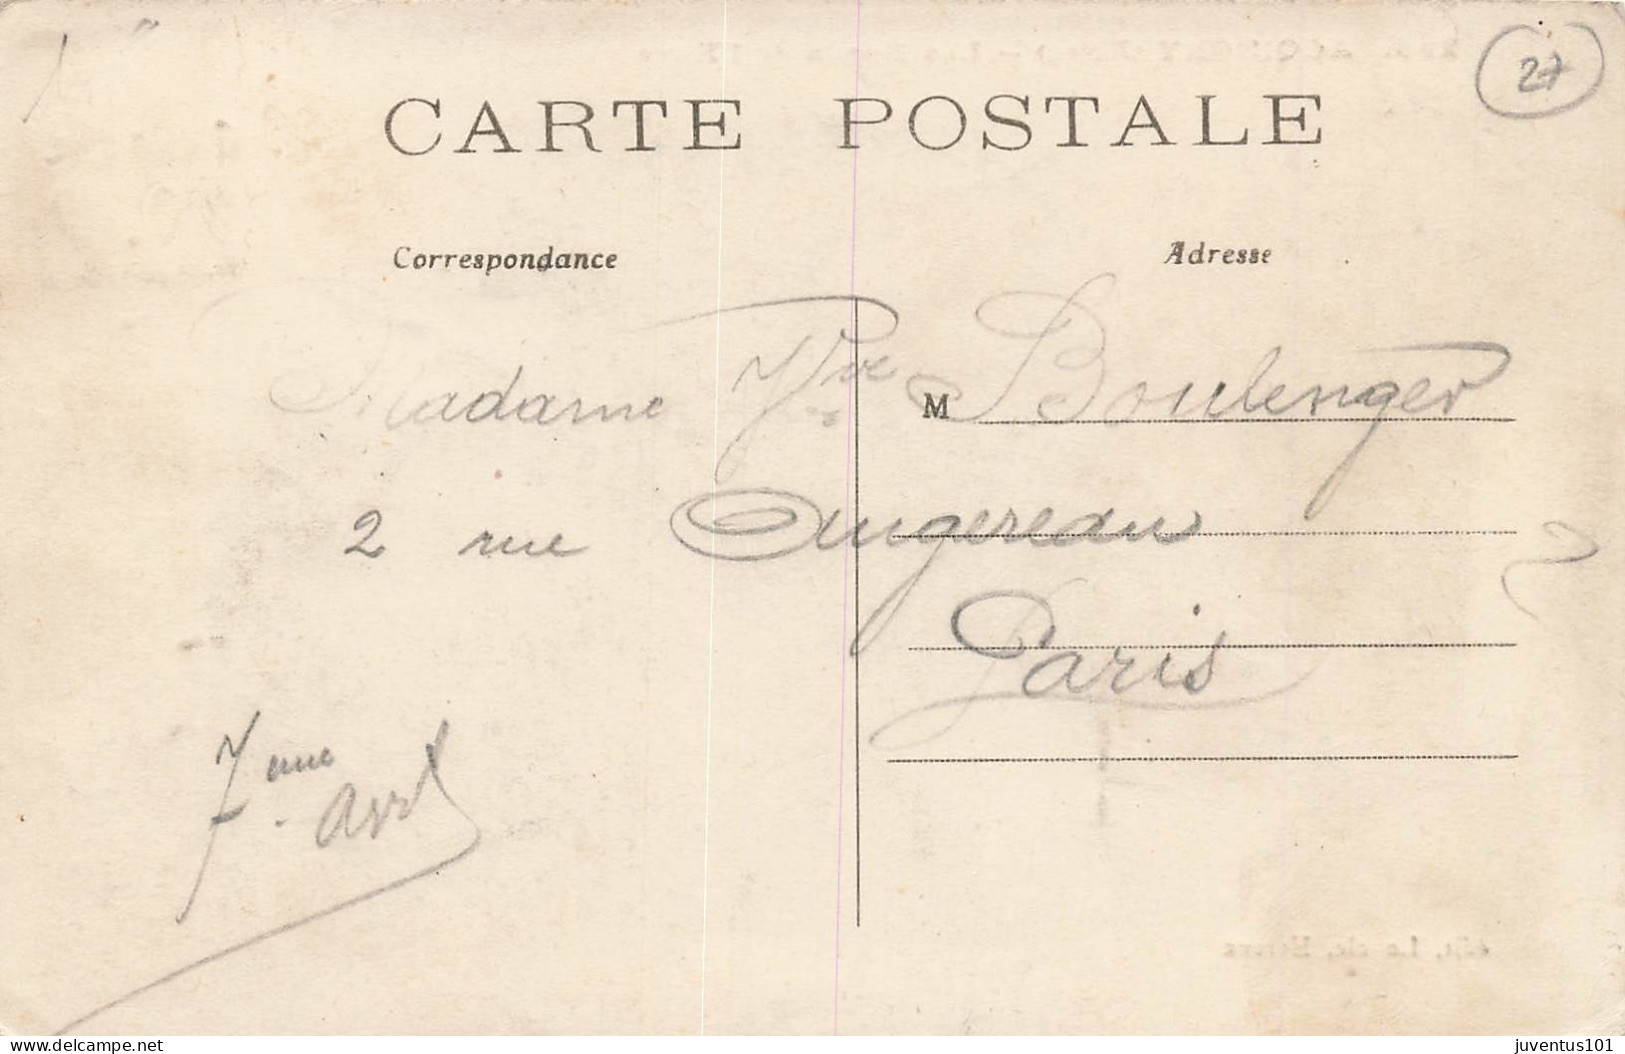 27
CARTE POSTALE
Correspondance
Adresse
Madame Vve M Boulenger
2 rue Augereau
Paris
7eme avril
delcampe.net
juventus101